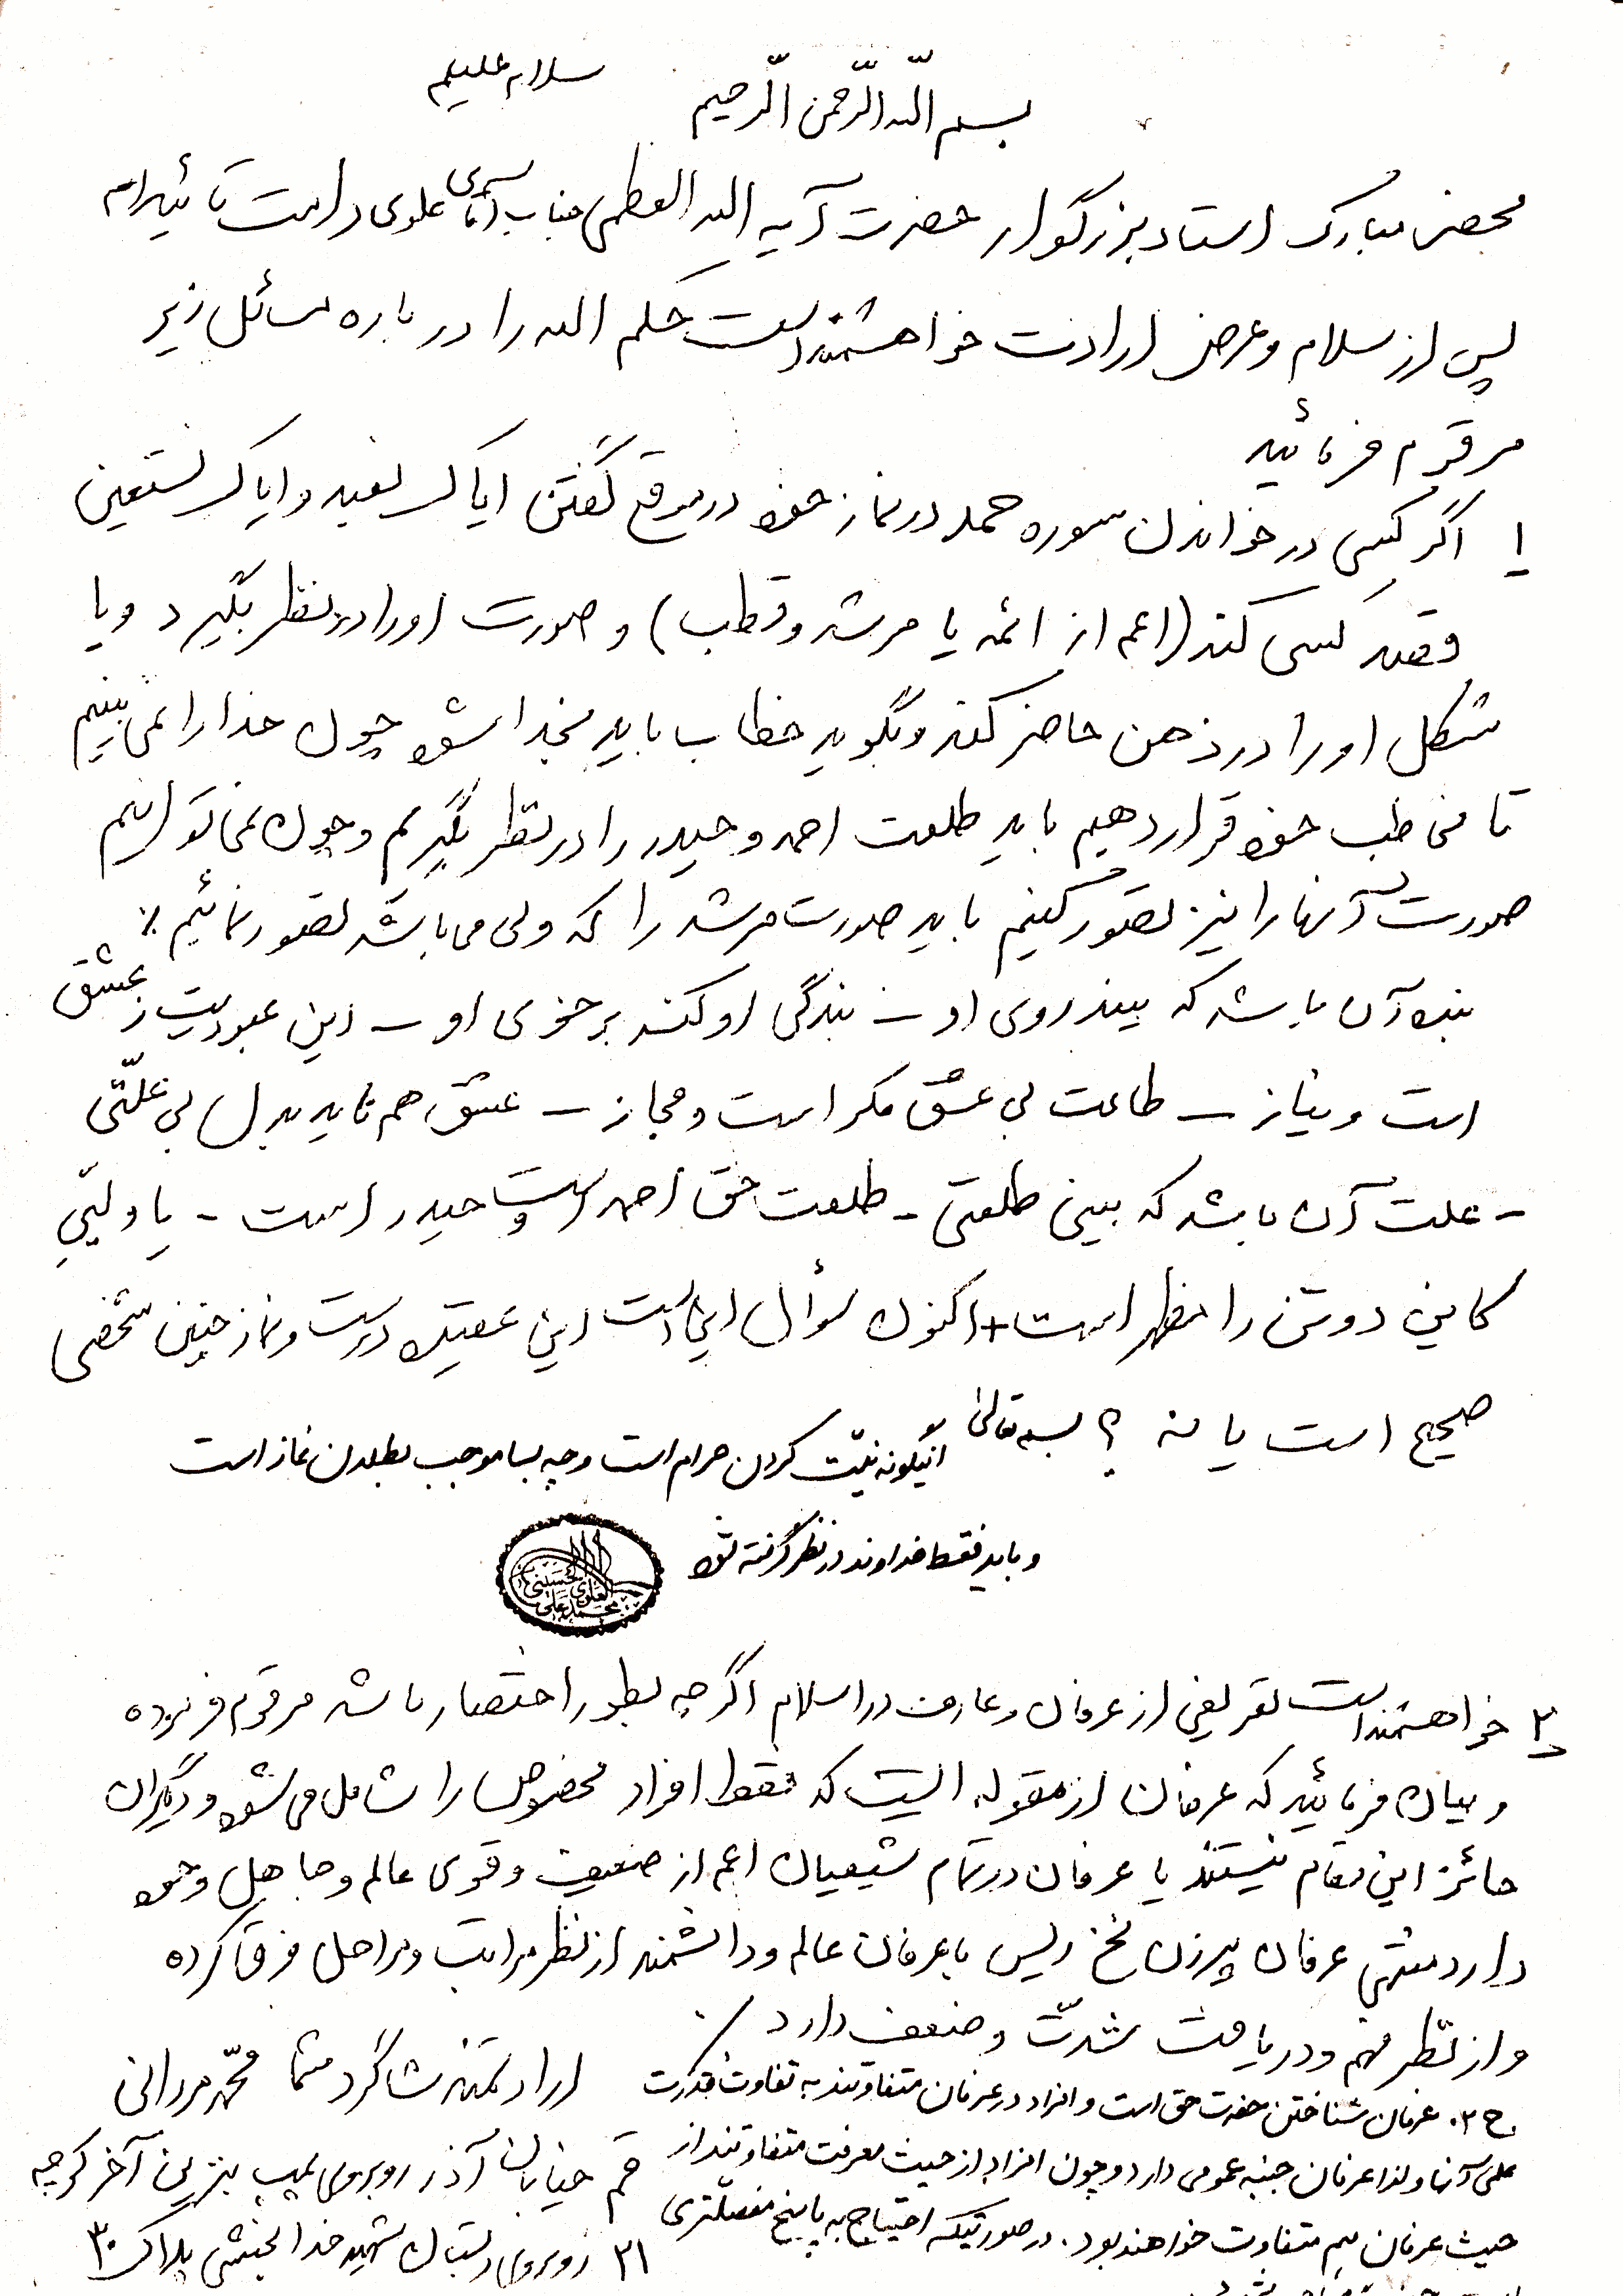 سلام علیکم
بسم الله الرّحمن الرّحیم
محضر مبارک استاد بزرگوار حضرت آیه الله العظمی جناب آقای علوی دامت تائیداته
پس از سلام و عرض ارادت خواهشمند است حکم الله را در باره مسائل زیر
مرقوم فرمائید
۱ اگر کسی در خواندن سوره حمد در نماز خود در موقع گفتن ایاک نعبد و ایاک نستعین
قصد کسی کند (اعم از ائمه یا مرشد و قطب) و صورت او را در نظر بگیرد و یا
شکل او را در ذهن حاضر کند و بگوید خطاب باید بخدا شود چون خدا را نمی بینیم
تا مخاطب خود قرار دهیم باید طلعت احمد و حیدر را در نظر بگیریم و چون نمی توانیم
صورت آنها را نیز تصور کنیم باید صورت مرشد را که ولی می باشد تصور نمائیم ٪
بنده آن باشد که بیند روی او - بندگی او کند بر خوی او - این عبودیت ز عشق
است و نیاز - طاعت بی عشق مکر است و مجاز - عشق هم ناید بدل بی علّتی
- علت آن باشد که بینی طلعتی - طلعت حق احمد است و حیدر است - یا ولیّی
کاین دو تن را مظهر است + اکنون سؤال این است این عقیده درست و نماز چنین شخصی
صحیح است یا نه ؟ بسمه تعالی
اینگونه نیّت کردن حرام است و چه بسا موجب بطلان نماز است
و باید فقط خداوند در نظر گرفته شود
العلوی الحسینی محمد علی
۲ خواهشمند است تعریفی از عرفان و عارف در اسلام اگر چه بطور اختصار باشد مرقوم فرموده
و بیان فرمائید که عرفان از مقوله ایست که فقط افراد مخصوص را شامل می شود و دیگران
حائز این مقام نیستند یا عرفان در تمام شیعیان اعم از ضعیف و قوی عالم و جاهل وجود
دارد منتهی عرفان پیرزن نخ ریس با عرفان عالم و دانشمند از نظر مراتب و مراحل فرق کرده
و از نظر فهم و دریافت شدّت و ضعف دارد
ارادتمند شاگرد شما محمّد مردانی
قم خیابان آذر روبروی پمپ بنزین آخر کوچه
۳۱ روبروی دبستان شهید خدابخشی پلاک ۳۰
ج ۲. عرفان شناختن حضرت حق است و افراد در عرفان متفاوتند به تفاوت قدرت
علمی آنها و لذا عرفان جنبه عمومی دارد و چون افراد از حیث معرفت متفاوتند از
حیث عرفان هم متفاوت خواهند بود. در صورتیکه احتیاج به پاسخ مفصلتری